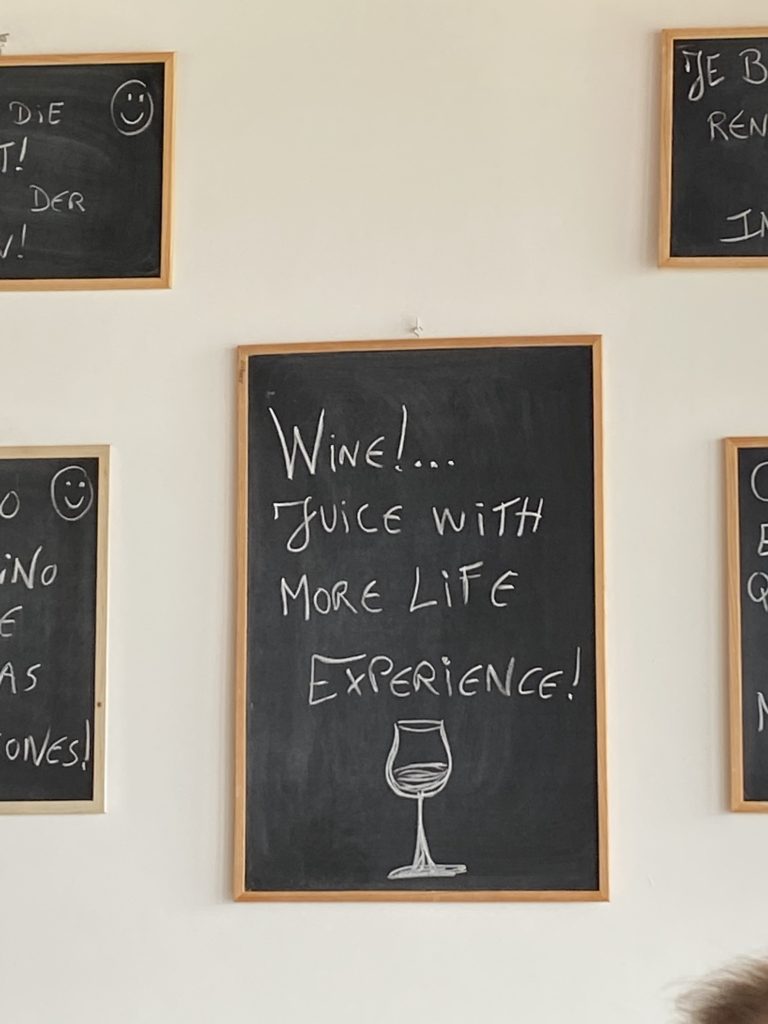 DiE
T!
DER
JE B
REN
WiNE!...
JUiCE WiTH
MORE LiFE
EXPERiENCE!
iNO
E
AS
ONES!